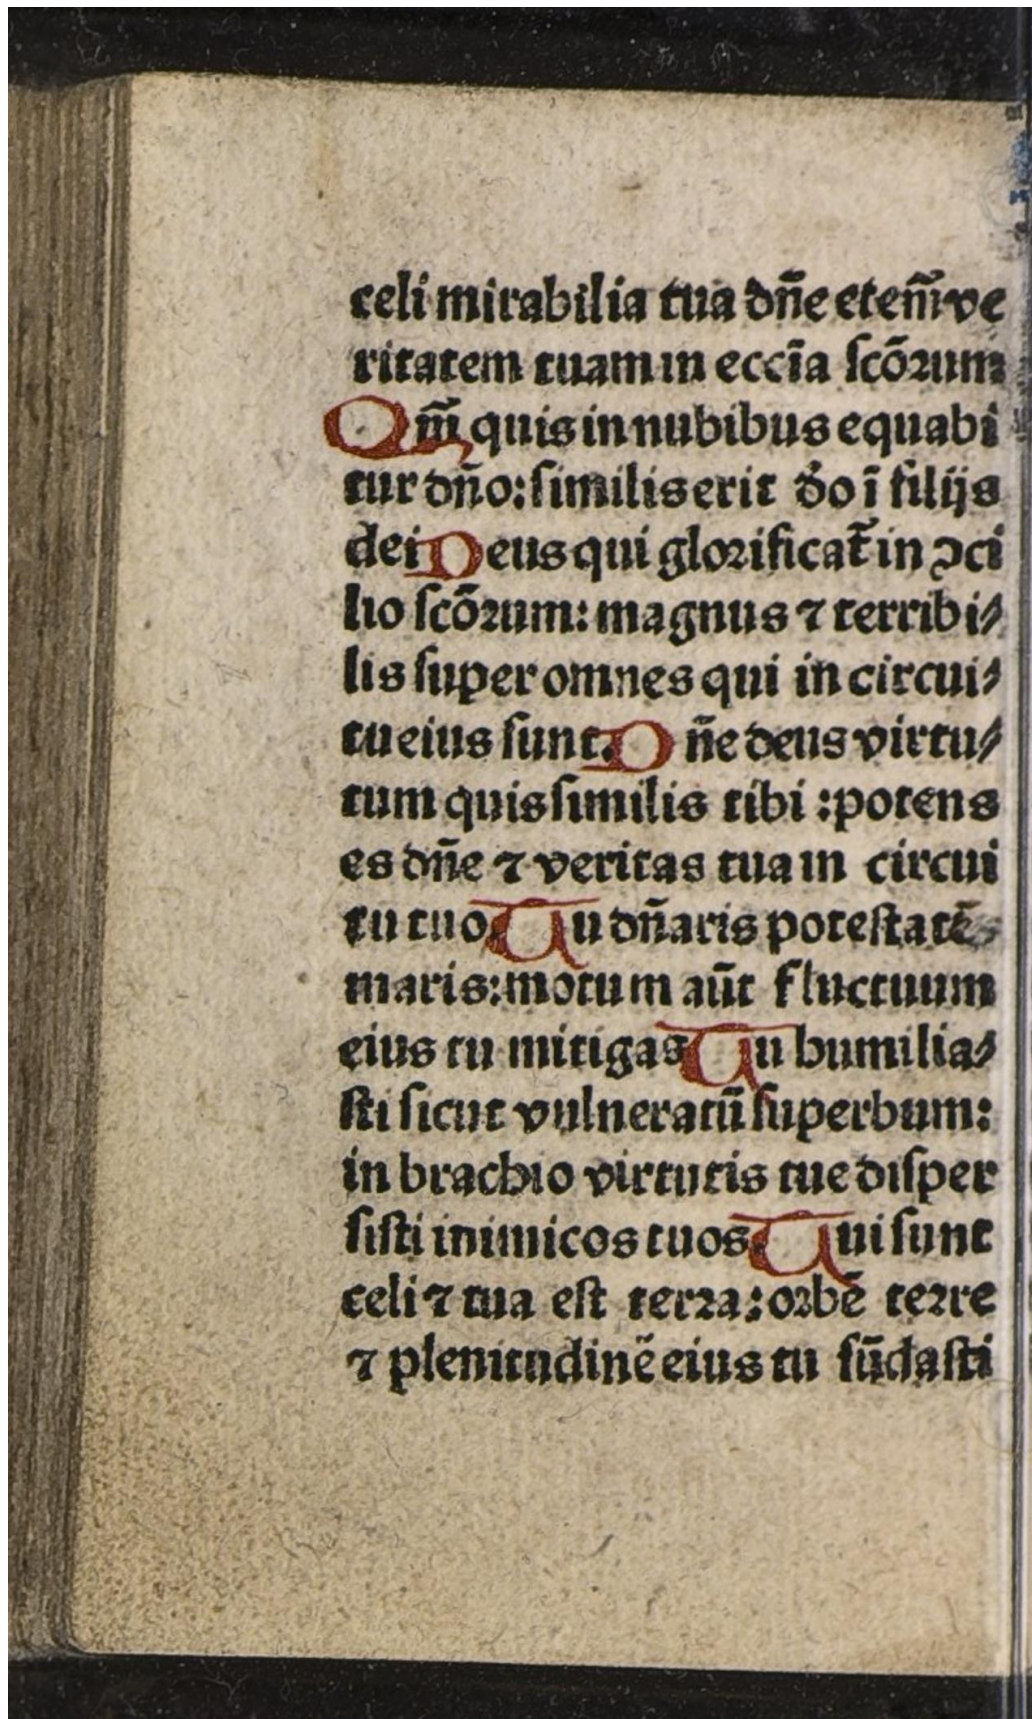 celi mirabilia tua dn̄e etenī ve
ritatem tuam in eccīa scōꝛum
Qm̄ quis in nubibus equabi
tur dn̄o: similis erit do ī filijs
dei Deus qui gloꝛificat̄ in ↄci
lio scōꝛum: magnus ⁊ terribi⸗
lis super omnes qui in circui⸗
tu eius sunt. Dn̄e deus virtu⸗
tum quis similis tibi : potens
es dn̄e ⁊ veritas tua in circui
tu tuo. Tu dn̄aris potestatē
maris: motum aūt fluctuum
eius tu mitigas Tu humilia⸗
sti sicut vulneratū superbum:
in brachio virtutis tue disper
sisti inimicos tuos. Tui sunt
celi ⁊ tua est terꝛa: oꝛbē teꝛre
⁊ plenitudinē eius tu fūdasti